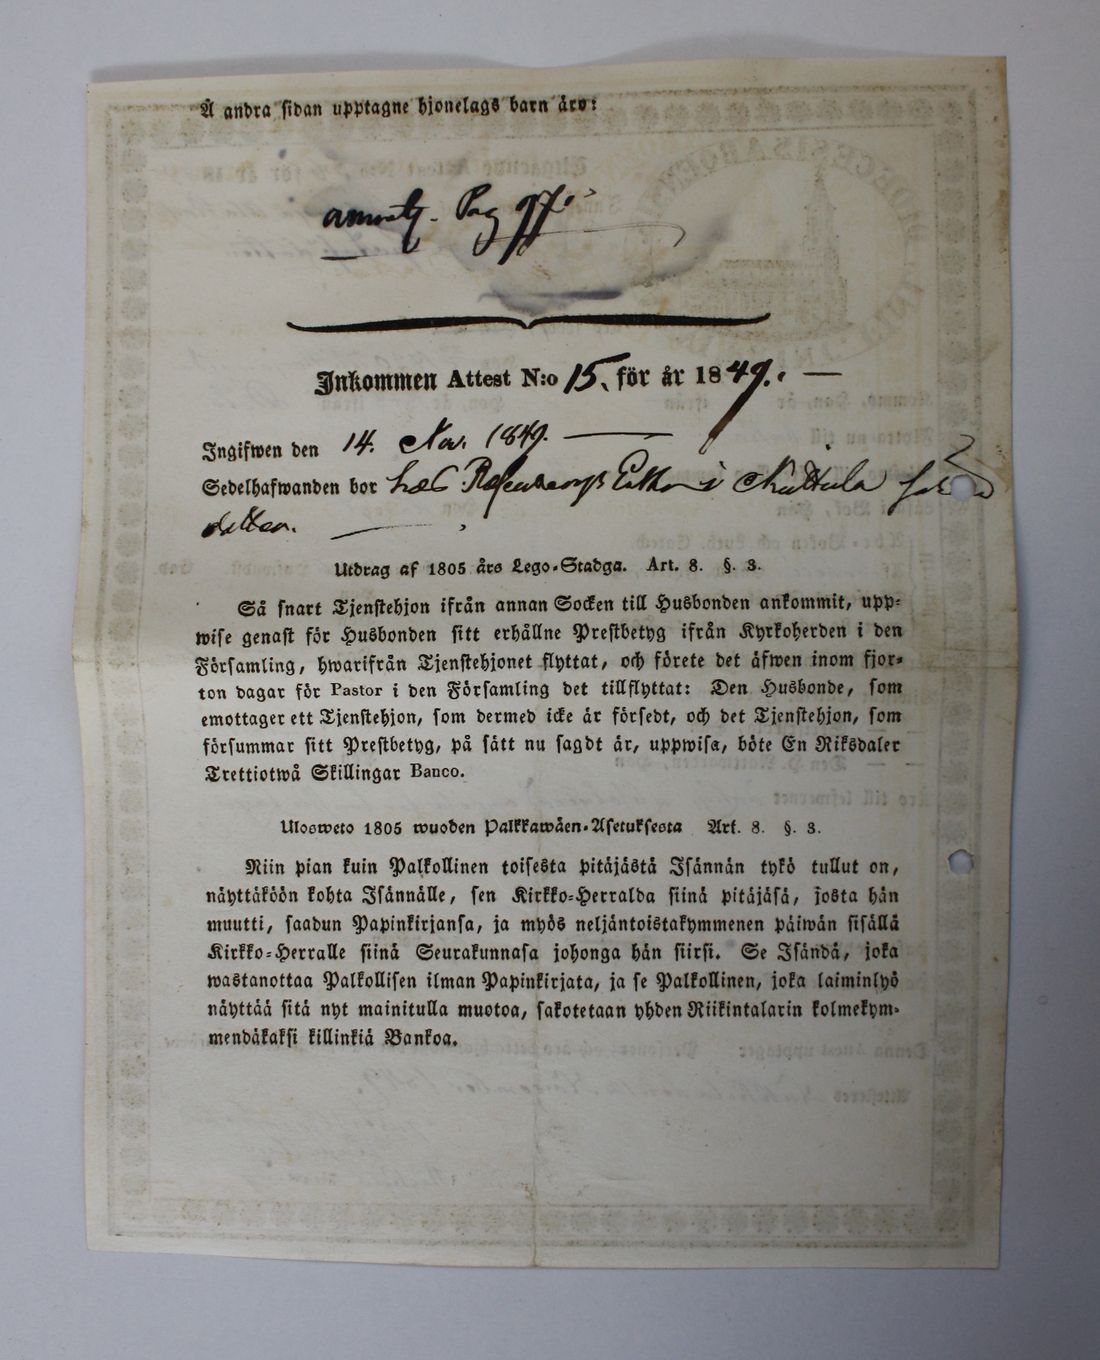 Å andra sidan upptagne hjonelags barn äro:
Pag
Inkommen Attest N:o 15. för år 1849.
Ingifwen den 14. Nov. 1849.
Sedelhafwanden bor hos i
Utdrag af 1805 års Lego-Stadga. Art. 8. §. 3.
Så snart Tjenstehjon ifrån annan Socken till Husbonden ankommit, upp-
wise genast för Husbonden sitt erhållne Prestbetyg ifrån Kyrkoherden i den
Församling, hwarifrån Tjenstehjonet flyttat, och förete det äfwen inom fjor-
ton dagar för Pastor i den Församling det tillflyttat: Den Husbonde, som
emottager ett Tjenstehjon, som dermed icke är försedt, och det Tjenstehjon, som
försummar sitt Prestbetyg, på sätt nu sagdt är, uppwisa, böte En Riksdaler
Trettiotwå Skillingar Banco.
Ulosweto 1805 wuoden Palkkawäen-Asetuksesta Art. 8. §. 3.
Niin pian kuin Palkollinen toisesta pitäjästä Isännän tykö tullut on,
näyttäköön kohta Isännälle, sen Kirkko-Herralda siinä pitäjäsä, josta hän
muutti, saadun Papinkirjansa, ja myös neljäntoistakymmenen päiwän sisällä
Kirkko-Herralle siinä Seurakunnasa johonga hän siirsi. Se Isändä, joka
wastanottaa Palkollisen ilman Papinkirjata, ja se Palkollinen, joka laiminlyö
näyttää sitä nyt mainitulla muotoa, sakotetaan yhden Riikintalarin kolmekym-
mendäkaksi killinkiä Bankoa.